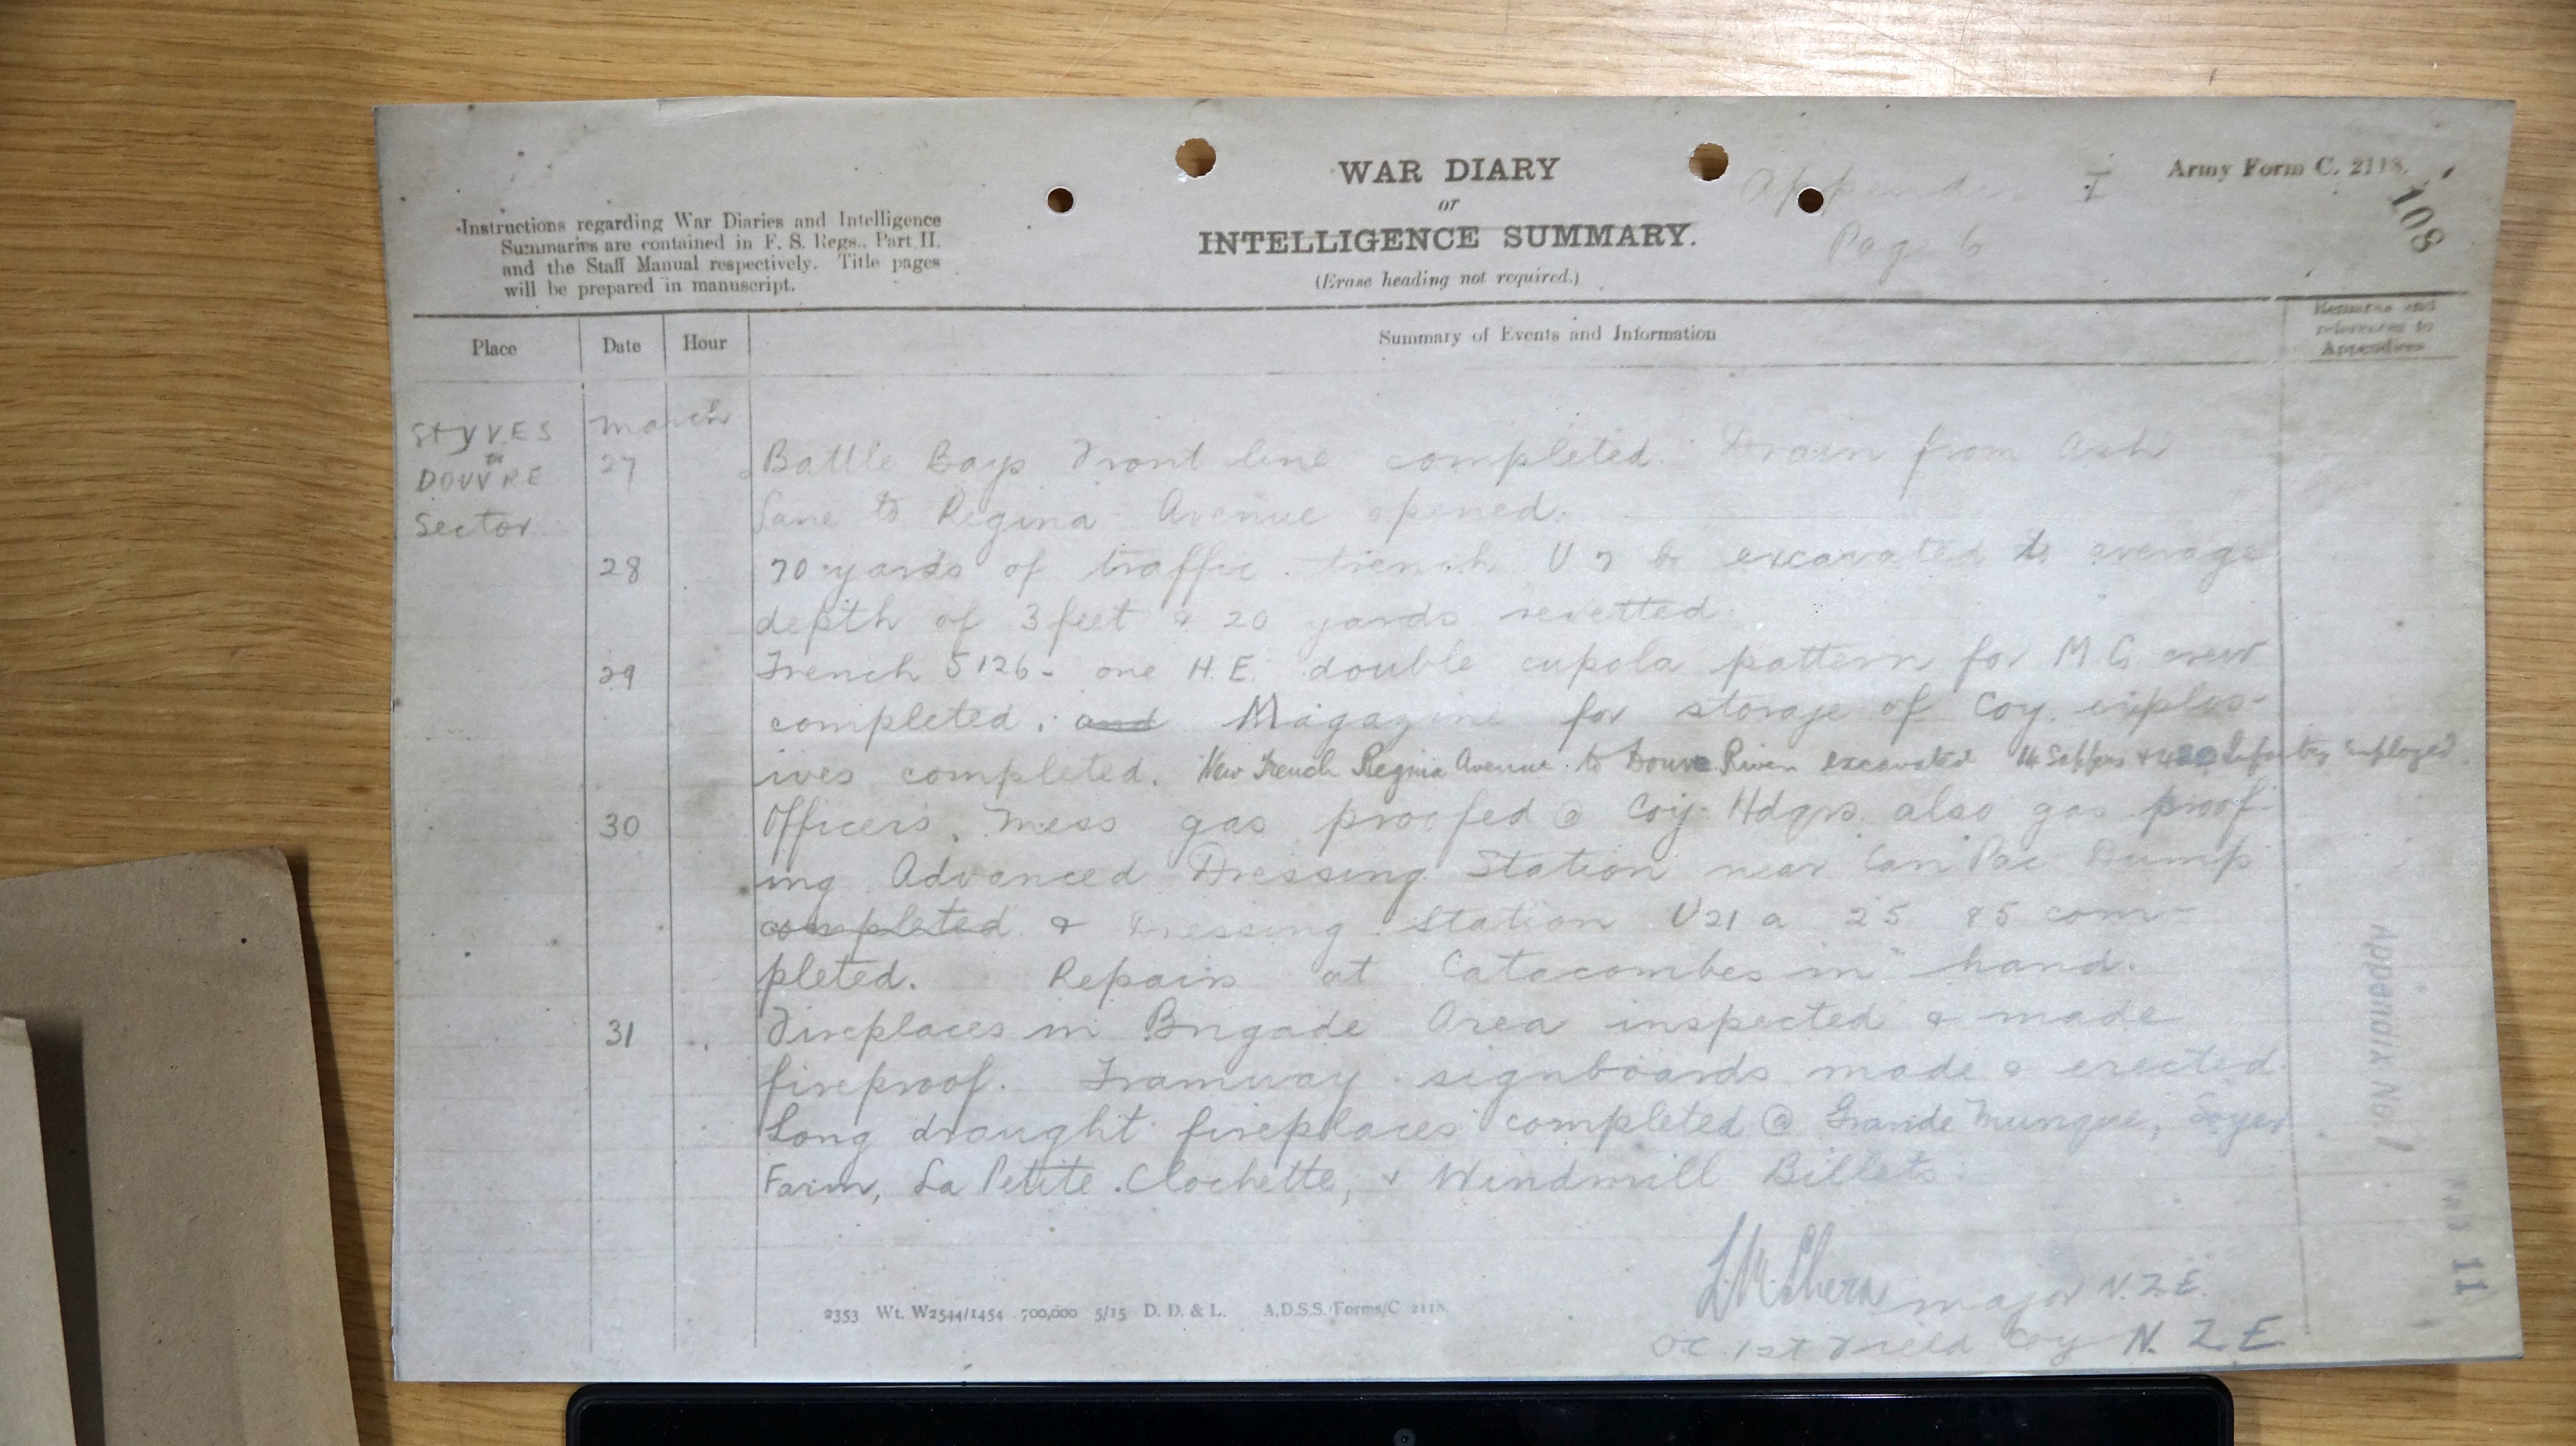 WAR DIARY
or
INTELLIGENCE SUMMARY.
(Erase heading not required.)
Instructions regarding War Diaries and Intelligence
Summaries are contained in F. S. Regs., Part II.
and the Staff Manual respectively. Title pages
will be prepared in manuscript.
Appendix I
Page 6
Army Form C. 2118.
108
Place Date Hour Summary of Events and Information Remarks and
references to
Appendices
St YVES
to
DOUVRE
Sector
March
27 Battle Bays Front line completed. Drain from Ash
Lane to Regina Avenue opened.
28 70 yards of traffic trench U 7 excavated to average
depth of 3 feet & 20 yards revetted
29 Trench S126 - one H.E. double cupola pattern for M G crew
completed. and Magazine for storage of Coy. explos-
ives completed. New Trench Regina Avenue to Douve River excavated 14 Sappers + Infantry Employed
30 Officers Mess gas proofed @ Coy. Hdqrs. also gas proof-
ing Advanced Dressing Station near Can Pac Dump
completed & Dressing Station U21 a 25 85 com-
pleted. Repairs at Catacombes in hand.
31 Fireplaces in Brigade Area inspected & made
fireproof. Tramway signboards made & erected.
Long draught fireplaces completed @ Grande Munque, Soyer
Farm, La Petite Clochette, & Windmill Billets.
Major N.Z.E.
O.C. 1st Field Coy N.Z.E
Appendix No. 1
11
2353 Wt. W2544/1454 700,000 5/15 D. D. & L. A.D.S.S./Forms/C 2118.